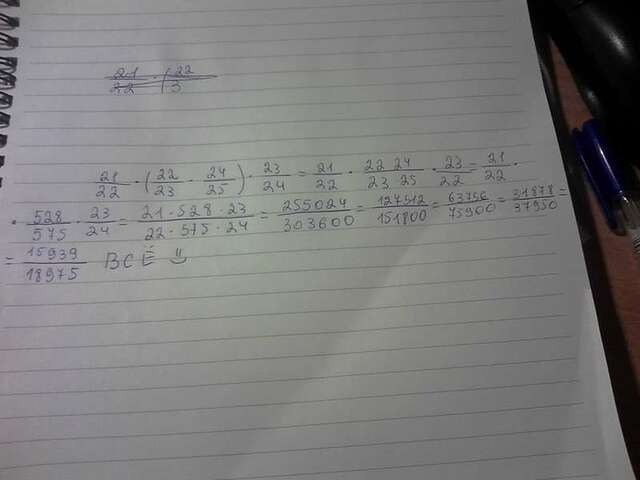 21/22 · (22/3
21/22 · (22/23 · 24/25) · 23/24 = 21/22 · 22 24/23 25 · 23/22 = 21/22 ·
· 528/575 · 23/24 = 21·528·23/22·575·24 = 255024/303600 = 127512/151800 = 63756/75900 = 31878/37950 =
= 15939/18975 ВСЁ